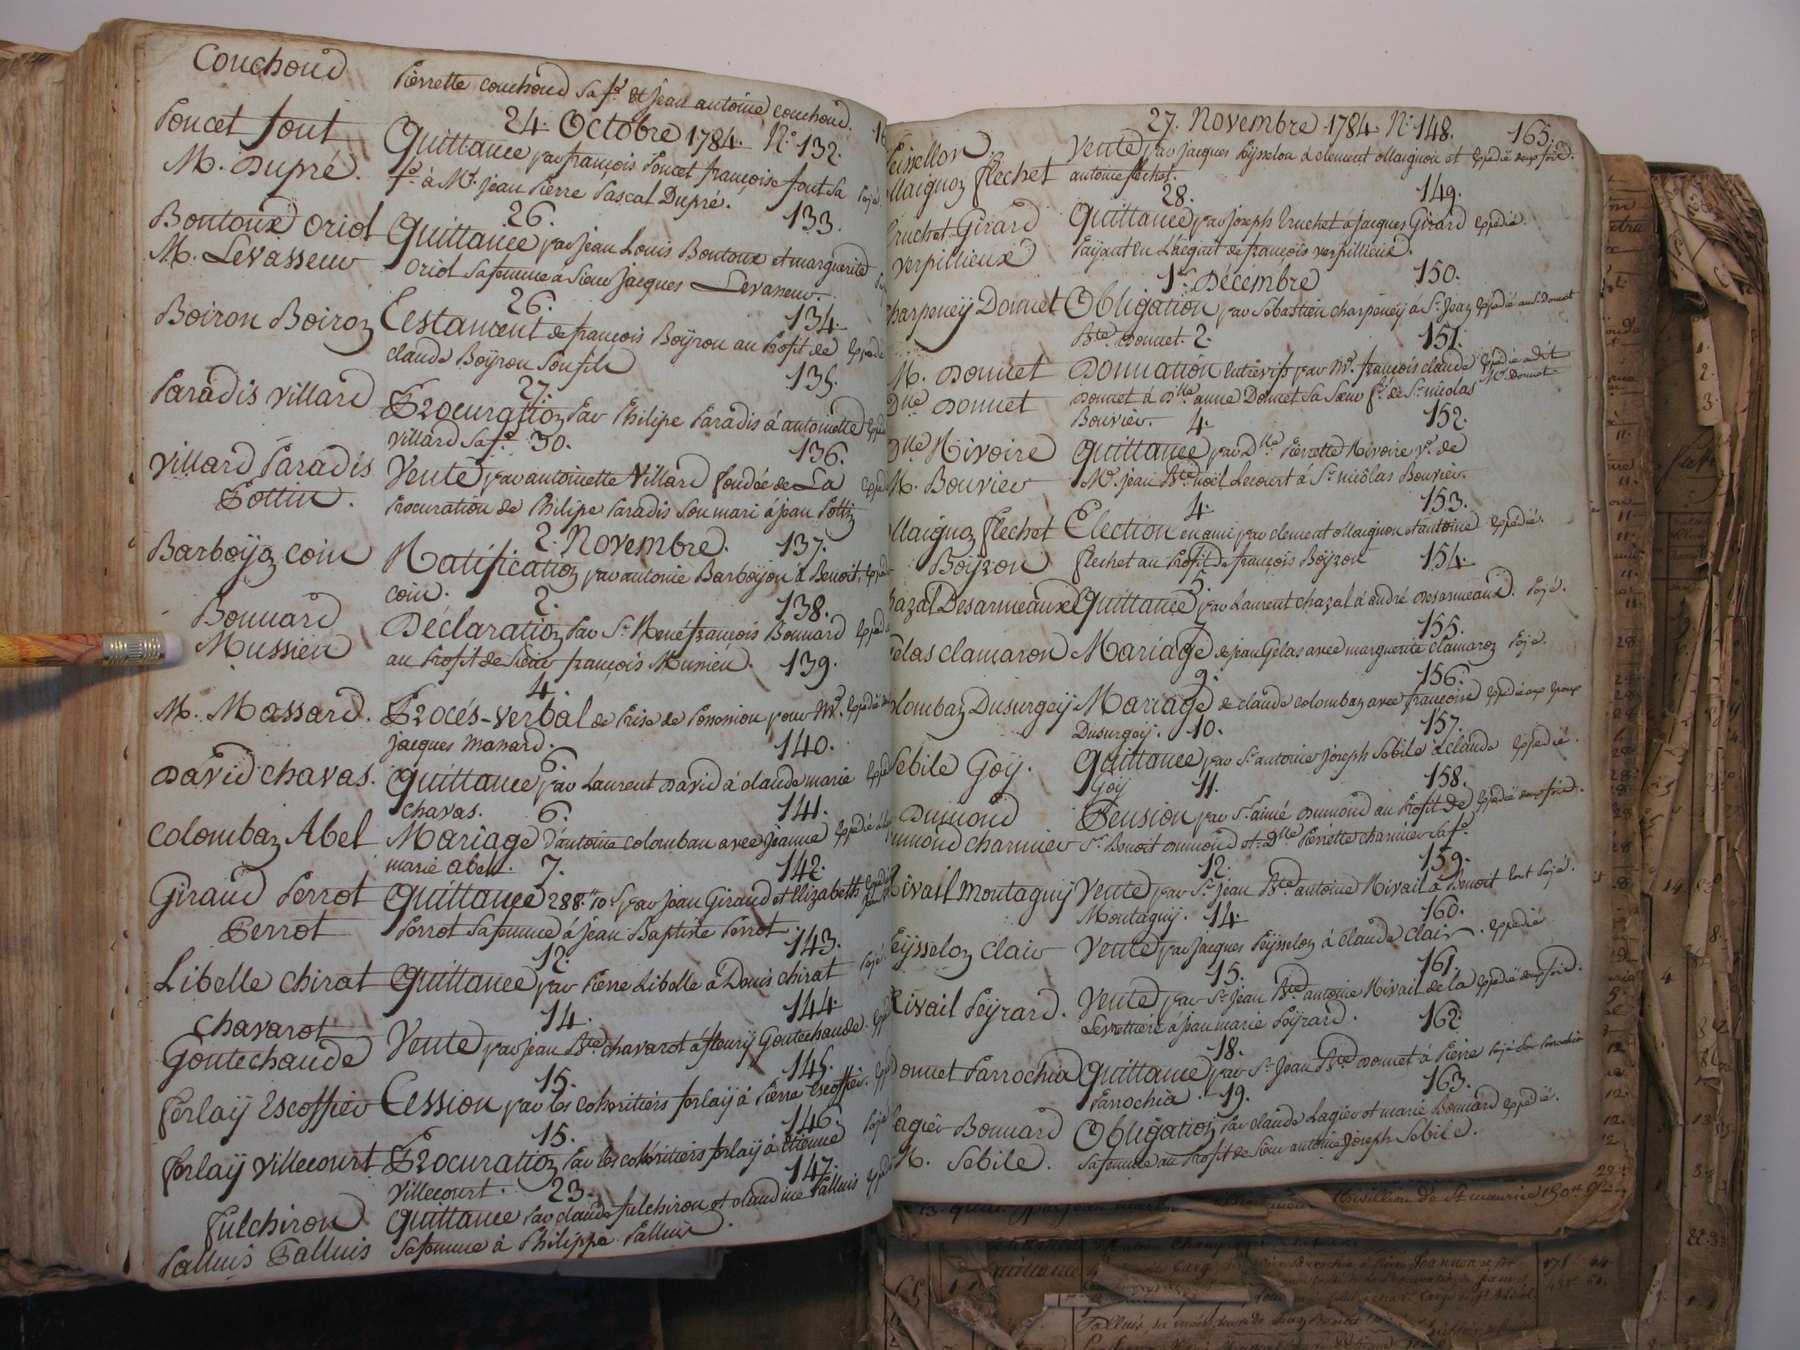 Couchoud Pierrette couchoud sa fe et jean antoine couchoud.
24. Octobre 1784. No. 132.
Poncet font Quittance par françois Poncet françoise font sa payé
M. Dupré. fe à Mr. jean Pierre Pascal Dupré.
26. 133.
Boutoux Oriol Quittance par jean Louis Boutoux et marguerite
M. Levasseur Oriol sa femme a sieur jacques Levasseur.
26. 134.
Boiron Boiron Testament de françois Boÿron au Profit de
claude Boÿron son fils
27. 135.
Paradis Villard Procuration Par Philipe Paradis à antoinette
Villard sa fe. 30. 136.
Villard Paradis Vente par antoinette Villard fondée de La
Pottin. Procuration de Philipe Paradis son mari à jean Pottin
2. Novembre. 137.
Barboÿon coin Ratification par antoine Barboÿon à Benoit
coin. 2. 138.
Bonnard Déclaration Par Sr. René françois Bonnard
Mussieu au Profit de sieur françois Mussieu. 139.
4.
M. Massard. Procés-verbal de Prise de Possession pour Mr.
jacques Massard. 140.
6.
David chavas. Quittance par Laurent David à claude marie
chavas. 6. 141.
Colomban Abel Mariage d'antoine colomban avec jeanne
marie abel. 7. 142.
Giraud Perrot Quittance 288.tt 10s par jean Giraud et Elizabeth
Perrot Perrot sa femme à jean Baptiste Perrot.
12. 143.
Libelle Chirat Quittance par Pierre Libelle à Denis chirat payé
14. 144.
Chavarot
Goutechaude Vente par jean Bte. chavarot à fleurÿ Goutechaude.
15. 145.
ferlaÿ Escoffier Cession par les cohéritiers ferlaÿ à Pierre escoffier.
15. 146.
ferlaÿ Villecourt Procuration Par les cohéritiers ferlaÿ à Etienne payé
Villecourt. 23. 147.
fulchiron Quittance Par claude fulchiron et claudine Palluis
Palluis Palluis sa femme à Philippe Palluis.
27. Novembre 1784. No. 148. 165.
Peissellon. Vente par jacques Peÿsselon à clement Maignon et
Maignon flechet antoine flechet.
28. 149.
Cruchet Girard Quittance par joseph Cruchet à jacques Girard Expedié.
Verpillieux Payant en L'acquit de françois verpillieux.
1er. Décembre 150.
Charpeneÿ Donnet Obligation par sebastien charpeneÿ à Sr. jean Expedié au S. Donnet
Bte. Donnet. 2. 151.
M. Donnet Donnation Entrevifs par Mr. françois claude Expedié audit
Dlle Donnet Donnet à Dlle. anne Donnet sa sœur fe. de Sr. nicolas Mr. Donnet
Bouvier. 4. 152.
Dlle Rivoire Quittance par Dlle. Pierrette Rivoire ve. de
M. Bouvier Mr. jean Bte. noël Lecourt à Sr. nicôlas Bouvier.
4. 153.
Maignon flechet Election en ami par clement Maignon et antoine Expedié.
Boÿron flechet au Profit de françois Boÿron 154.
5.
Chazal Desarmeaux Quittance par Laurent chazal à andré Desarmeaux. Payé.
7. 155.
Gelas clamaron Mariage de jean Gelas avec marguerite clamaron Payé.
9. 156.
Colomban Dusurgeÿ Mariage de claude colomban avec françoise Expedié aux Epoux
Dusurgeÿ. 10. 157.
Sebile Goÿ. Quittance par Sr. antoine joseph Sebile à claude Expedié.
Goÿ 11. 158.
Dumond Pension par Sr. aimé Dumond au Profit de
Dumond charmier Sr. Benoit Dumond et Dlle Pierrette charmier sa fe.
12. 159.
Rivail Montaguÿ Vente par Sr. jean Bte. antoine Rivail à Benoit tout Payé.
Montaguÿ. 14. 160.
Peÿsselon Clair Vente par jacques Peÿsselon à claude clair. Expedié
15. 161.
Rivail Peÿrard. Vente par Sr. jean Bte. antoine Rivail de la
Levrettiere à jean marie Peÿrard. 162.
18.
Donnet Parrochia Quittance par Sr. jean Bte. Donnet à Pierre Payé Par Parrochia
Parrochia. 19. 163.
Lagier Bonnard Obligation Par claude Lagier et marie Bonnard Expedié.
M. Sebile. sa femme au Profit de sieur antoine joseph Sebile.